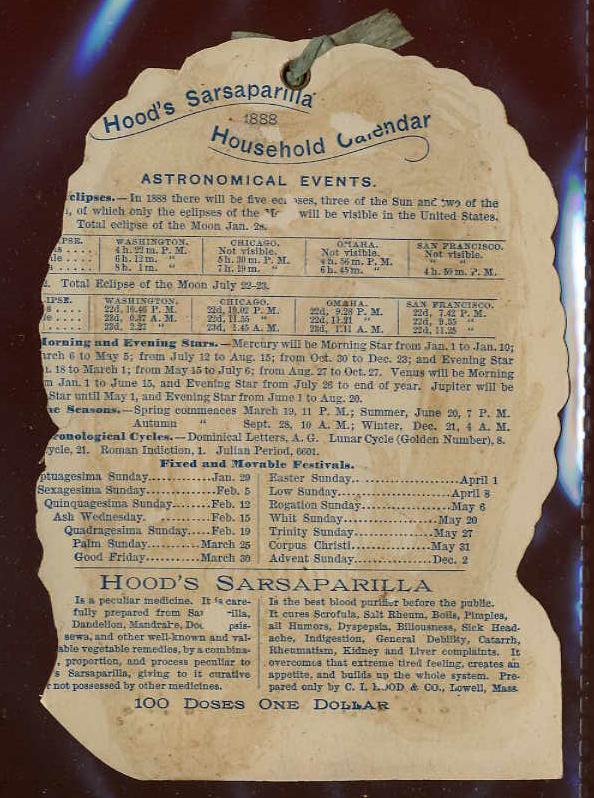 Hood's Sarsaparilla
1888
Household Calendar
ASTRONOMICAL EVENTS.
clipses.—In 1888 there will be five ec ses, three of the Sun and two of the
, of which only the eclipses of the M will be visible in the United States.
Total eclipse of the Moon Jan. 28.
PSE. WASHINGTON. CHICAGO. OMAHA. SAN FRANCISCO.
s .... 4 h. 22 m. P. M. Not visible. Not visible. Not visible.
le .... 6 h. 12 m. " 5 h. 30 m. P. M. 4 h. 56 m. P. M. " "
h .... 8 h. 1 m. " 7 h. 19 m. " 6 h. 45 m. " 4 h. 50 m. P. M.
. Total Eclipse of the Moon July 22-23.
IPSE. WASHINGTON. CHICAGO. OMAHA. SAN FRANCISCO.
s .... 22d, 10.46 P. M. 22d, 10.02 P. M. 22d, 9.28 P. M. 22d, 7.42 P. M.
.... 23d, 0.37 A. M. 22d, 11.55 " 22d, 11.21 " 22d, 9.35 "
..... 23d, 2.27 " 23d, 1.45 A. M. 23d, 1.11 A. M. 22d, 11.25 "
orning and Evening Stars.—Mercury will be Morning Star from Jan. 1 to Jan. 10;
arch 6 to May 5; from July 12 to Aug. 15; from Oct. 30 to Dec. 23; and Evening Star
n. 18 to March 1; from May 15 to July 6; from Aug. 27 to Oct. 27. Venus will be Morning
m Jan. 1 to June 15, and Evening Star from July 26 to end of year. Jupiter will be
Star until May 1, and Evening Star from June 1 to Aug. 20.
he Seasons.—Spring commences March 19, 11 P. M.; Summer, June 20, 7 P. M.
Autumn " Sept. 28, 10 A. M.; Winter, Dec. 21, 4 A. M.
ronological Cycles.—Dominical Letters, A. G. Lunar Cycle (Golden Number), 8.
ycle, 21. Roman Indiction, 1. Julian Period, 6601.
Fixed and Movable Festivals.
ptuagesima Sunday............Jan. 29
Sexagesima Sunday...........Feb. 5
Quinquagesima Sunday......Feb. 12
Ash Wednesday. ............Feb. 15
Quadragesima Sunday.....Feb. 19
Palm Sunday............March 25
Good Friday............March 30
Easter Sunday..................April 1
Low Sunday...................April 8
Rogation Sunday..............May 6
Whit Sunday................May 20
Trinity Sunday..............May 27
Corpus Christi..............May 31
Advent Sunday..............Dec. 2
HOOD'S SARSAPARILLA
Is a peculiar medicine. It is care-
fully prepared from Sar illa,
Dandelion, Mandrake, Doc psis-
sewa, and other well-known and val-
able vegetable remedies, by a combina-
, proportion, and process peculiar to
s Sarsaparilla, giving to it curative
r not possessed by other medicines.
Is the best blood purifier before the public.
It cures Scrofula, Salt Rheum, Boils, Pimples,
all Humors, Dyspepsia, Biliousness, Sick Head-
ache, Indigestion, General Debility, Catarrh,
Rheumatism, Kidney and Liver complaints. It
overcomes that extreme tired feeling, creates an
appetite, and builds up the whole system. Pre-
pared only by C. I. HOOD & CO., Lowell, Mass.
100 DOSES ONE DOLLAR